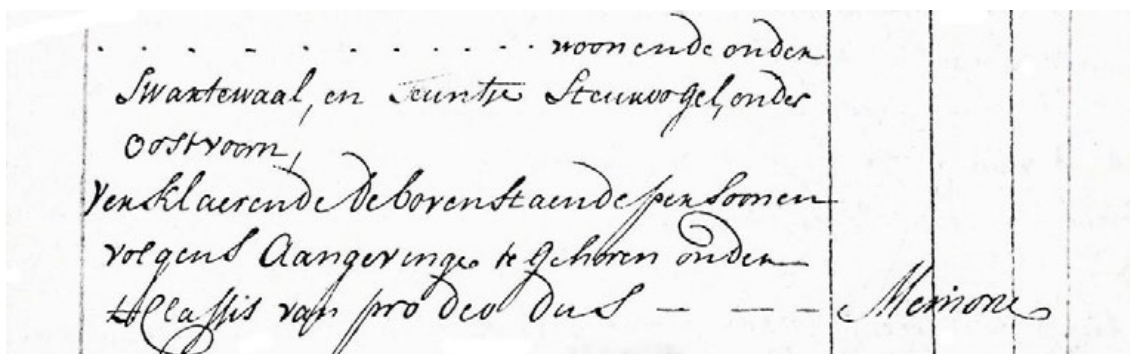 . . . . . . . . . . . . . woonende onder
Swartewaal, en Teuntje Steurvogel, onder
Oostvoorn,
Versklaerende de bovenstaende persoonen
volgens Aangevinge te gehoren onder
Classis van pro deo dus — — — Memorie